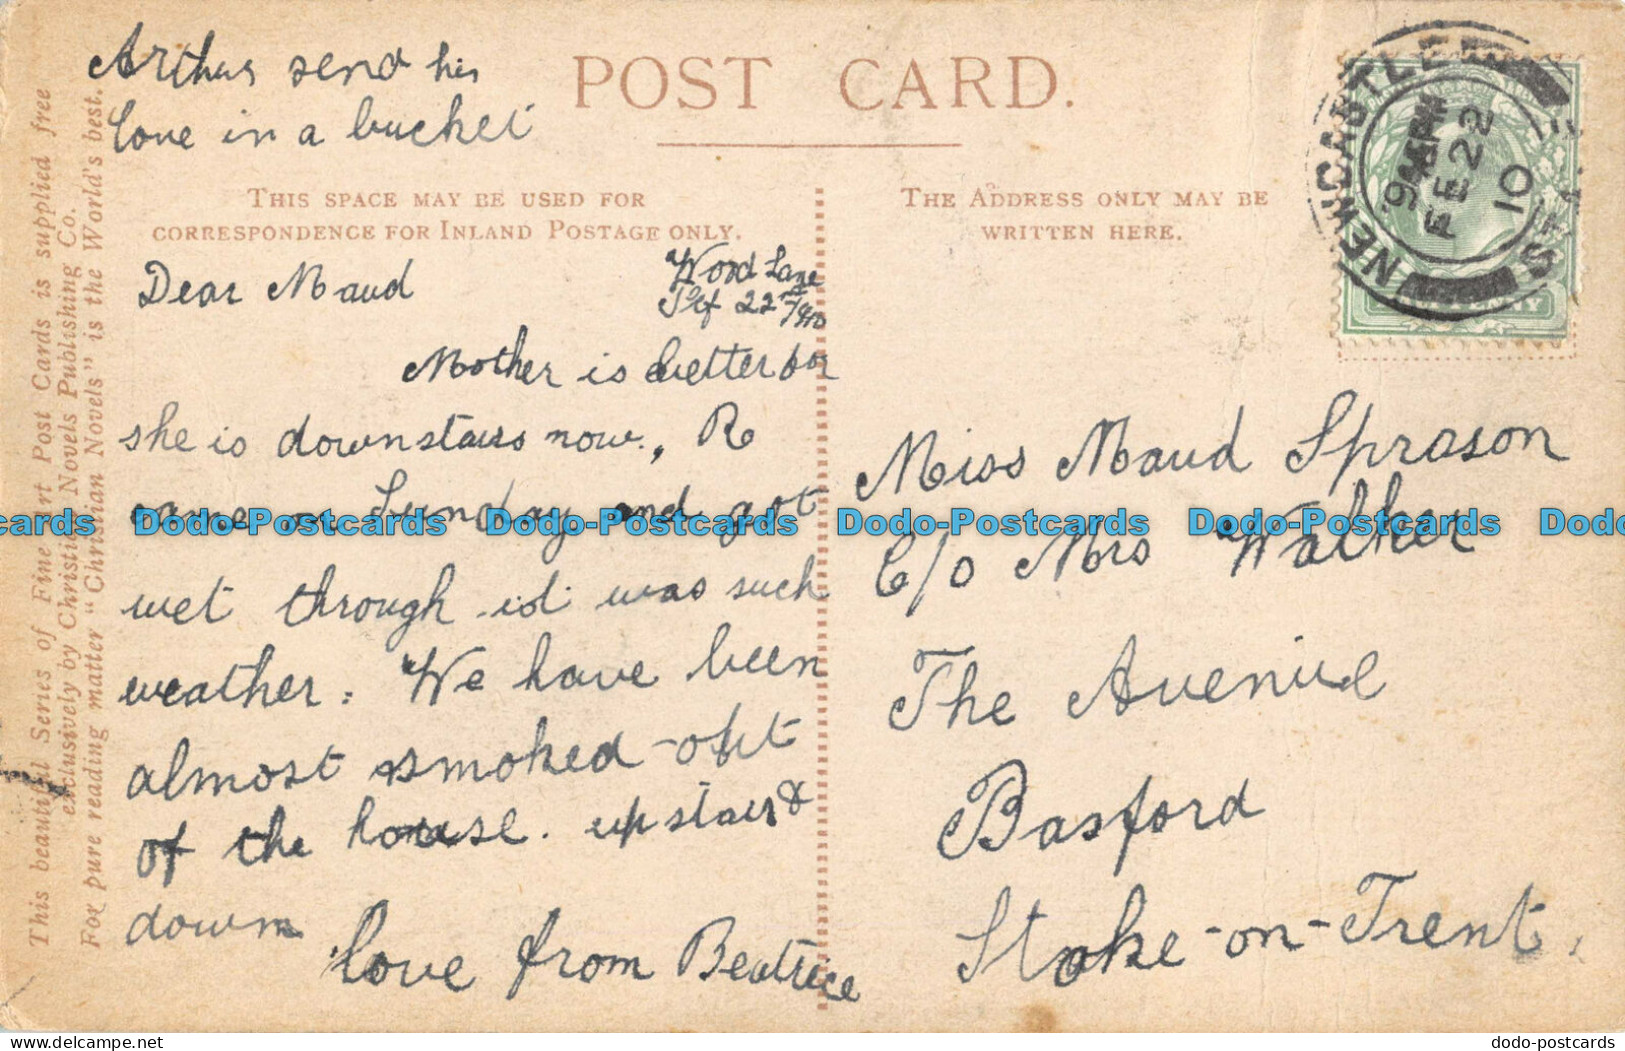 Arthur send his
love in a bucket
POST CARD.
THIS SPACE MAY BE USED FOR
CORRESPONDENCE FOR INLAND POSTAGE ONLY.
THE ADDRESS ONLY MAY BE
WRITTEN HERE.
NEWCASTLE STAFFS
9 PM
FE 22
10
This beautiful Series of Fine Art Post Cards is supplied free
exclusively by Christian Novels Publishing Co.
For pure reading matter "Christian Novels" is the World's best.
Wood Lane
22
Dear Maud
Mother is better for
she is downstairs now., R
came on Sunday and got
wet through it was such
weather. We have been
almost smoked out
of the house. upstairs &
down
love from Beatrice
Miss Maud Sprason
C/o Mrs Walker
The Avenue
Basford
Stoke-on-Trent.
cards Dodo-Postcards Dodo-Postcards Dodo-Postcards Dodo-Postcards Dodo
dodo-postcards.com dodo-postcards